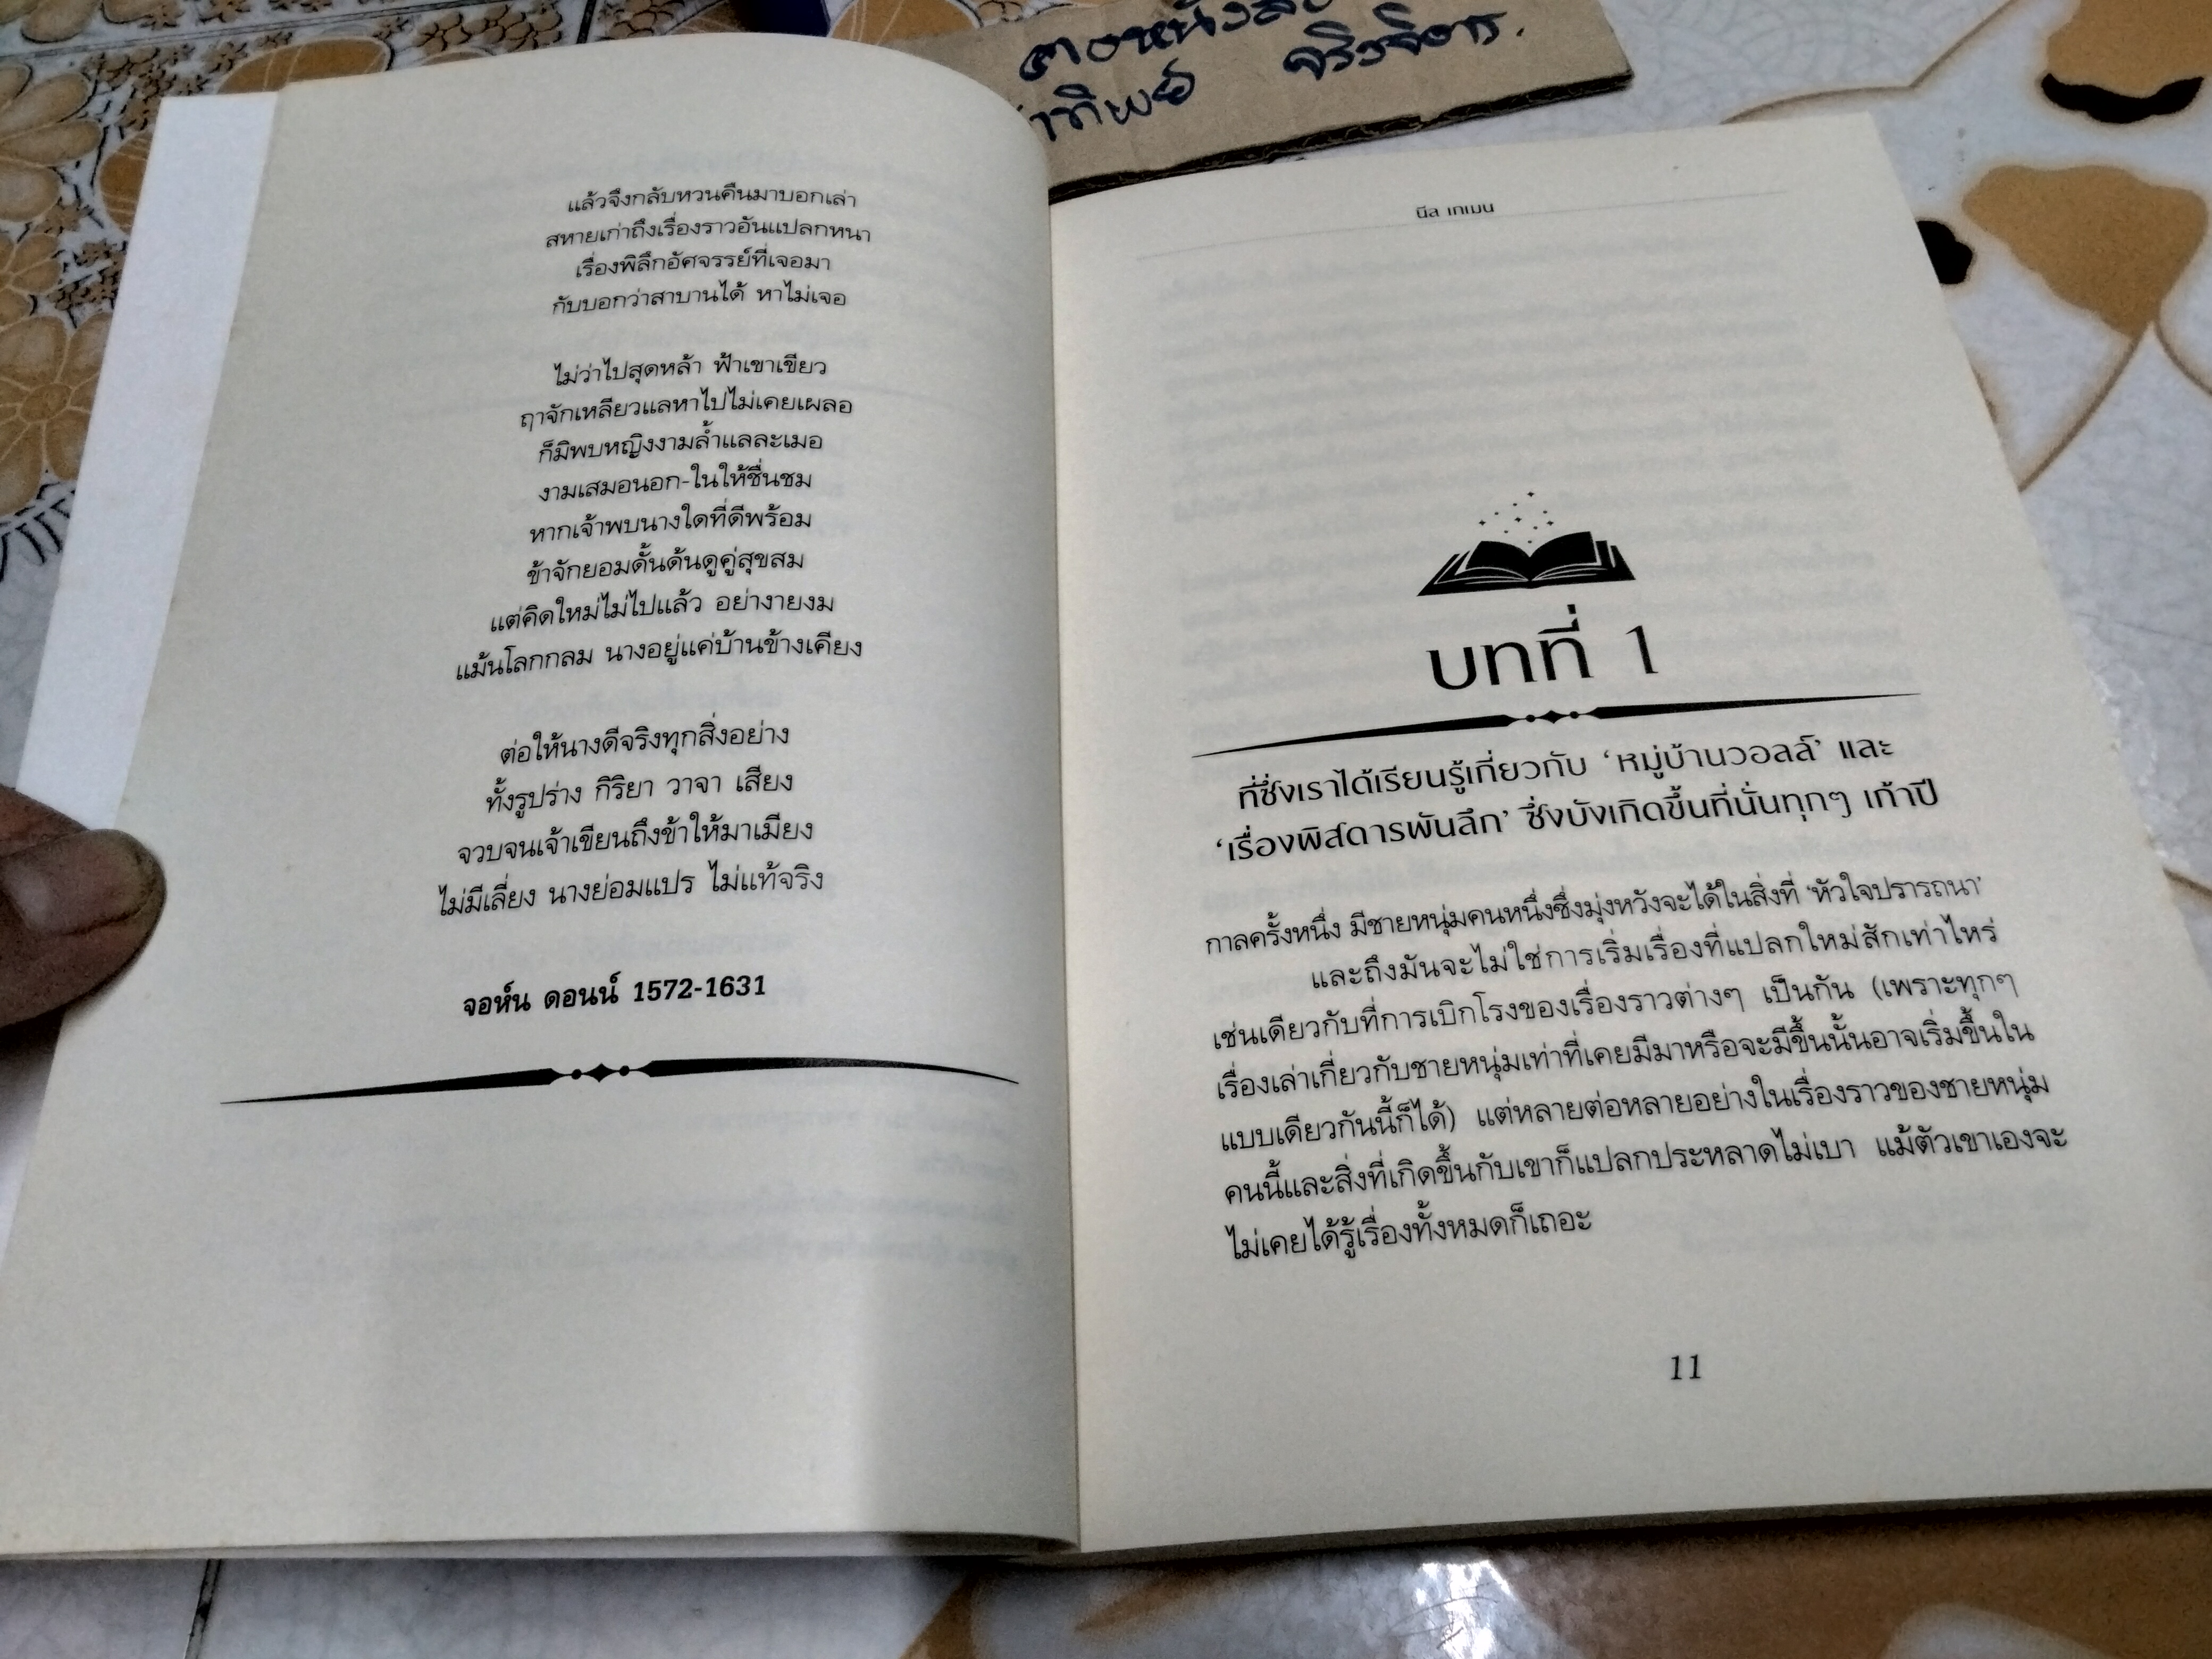 แล้วจึงกลับหวนคืนมาบอกเล่า
สหายเก่าถึงเรื่องราวอันแปลกหนา
เรื่องพิลึกอัศจรรย์ที่เจอมา
กับบอกว่าสาบานได้ หาไม่เจอ
ไม่ว่าไปสุดหล้า ฟ้าเขาเขียว
ฤาจักเหลียวแลหาไปไม่เคยเผลอ
ก็มิพบหญิงงามล้ำแลละเมอ
งามเสมอนอก-ในให้ชื่นชม
หากเจ้าพบนางใดที่ดีพร้อม
ข้าจักยอมดั้นด้นดูคู่สุขสม
แต่คิดใหม่ไม่ไปแล้ว อย่างายงม
แม้นโลกกลม นางอยู่แค่บ้านข้างเคียง
ต่อให้นางดีจริงทุกสิ่งอย่าง
ทั้งรูปร่าง กิริยา วาจา เสียง
จวบจนเจ้าเขียนถึงข้าให้มาเมียง
ไม่มีเลี่ยง นางย่อมแปร ไม่แท้จริง
จอห์น ดอนน์ 1572-1631
นีล เกเมน
บทที่ 1
ที่ซึ่งเราได้เรียนรู้เกี่ยวกับ ‘หมู่บ้านวอลล์’ และ
‘เรื่องพิสดารพันลึก’ ซึ่งบังเกิดขึ้นที่นั่นทุกๆ เก้าปี
กาลครั้งหนึ่ง มีชายหนุ่มคนหนึ่งซึ่งมุ่งหวังจะได้ในสิ่งที่ ‘หัวใจปรารถนา’
และถึงมันจะไม่ใช่การเริ่มเรื่องที่แปลกใหม่สักเท่าไหร่
เช่นเดียวกับที่การเบิกโรงของเรื่องราวต่างๆ เป็นกัน (เพราะทุกๆ
เรื่องเล่าเกี่ยวกับชายหนุ่มเท่าที่เคยมีมาหรือจะมีขึ้นนั้นอาจเริ่มขึ้นใน
แบบเดียวกันนี้ก็ได้) แต่หลายต่อหลายอย่างในเรื่องราวของชายหนุ่ม
คนนี้และสิ่งที่เกิดขึ้นกับเขาก็แปลกประหลาดไม่เบา แม้ตัวเขาเองจะ
ไม่เคยได้รู้เรื่องทั้งหมดก็เถอะ
11